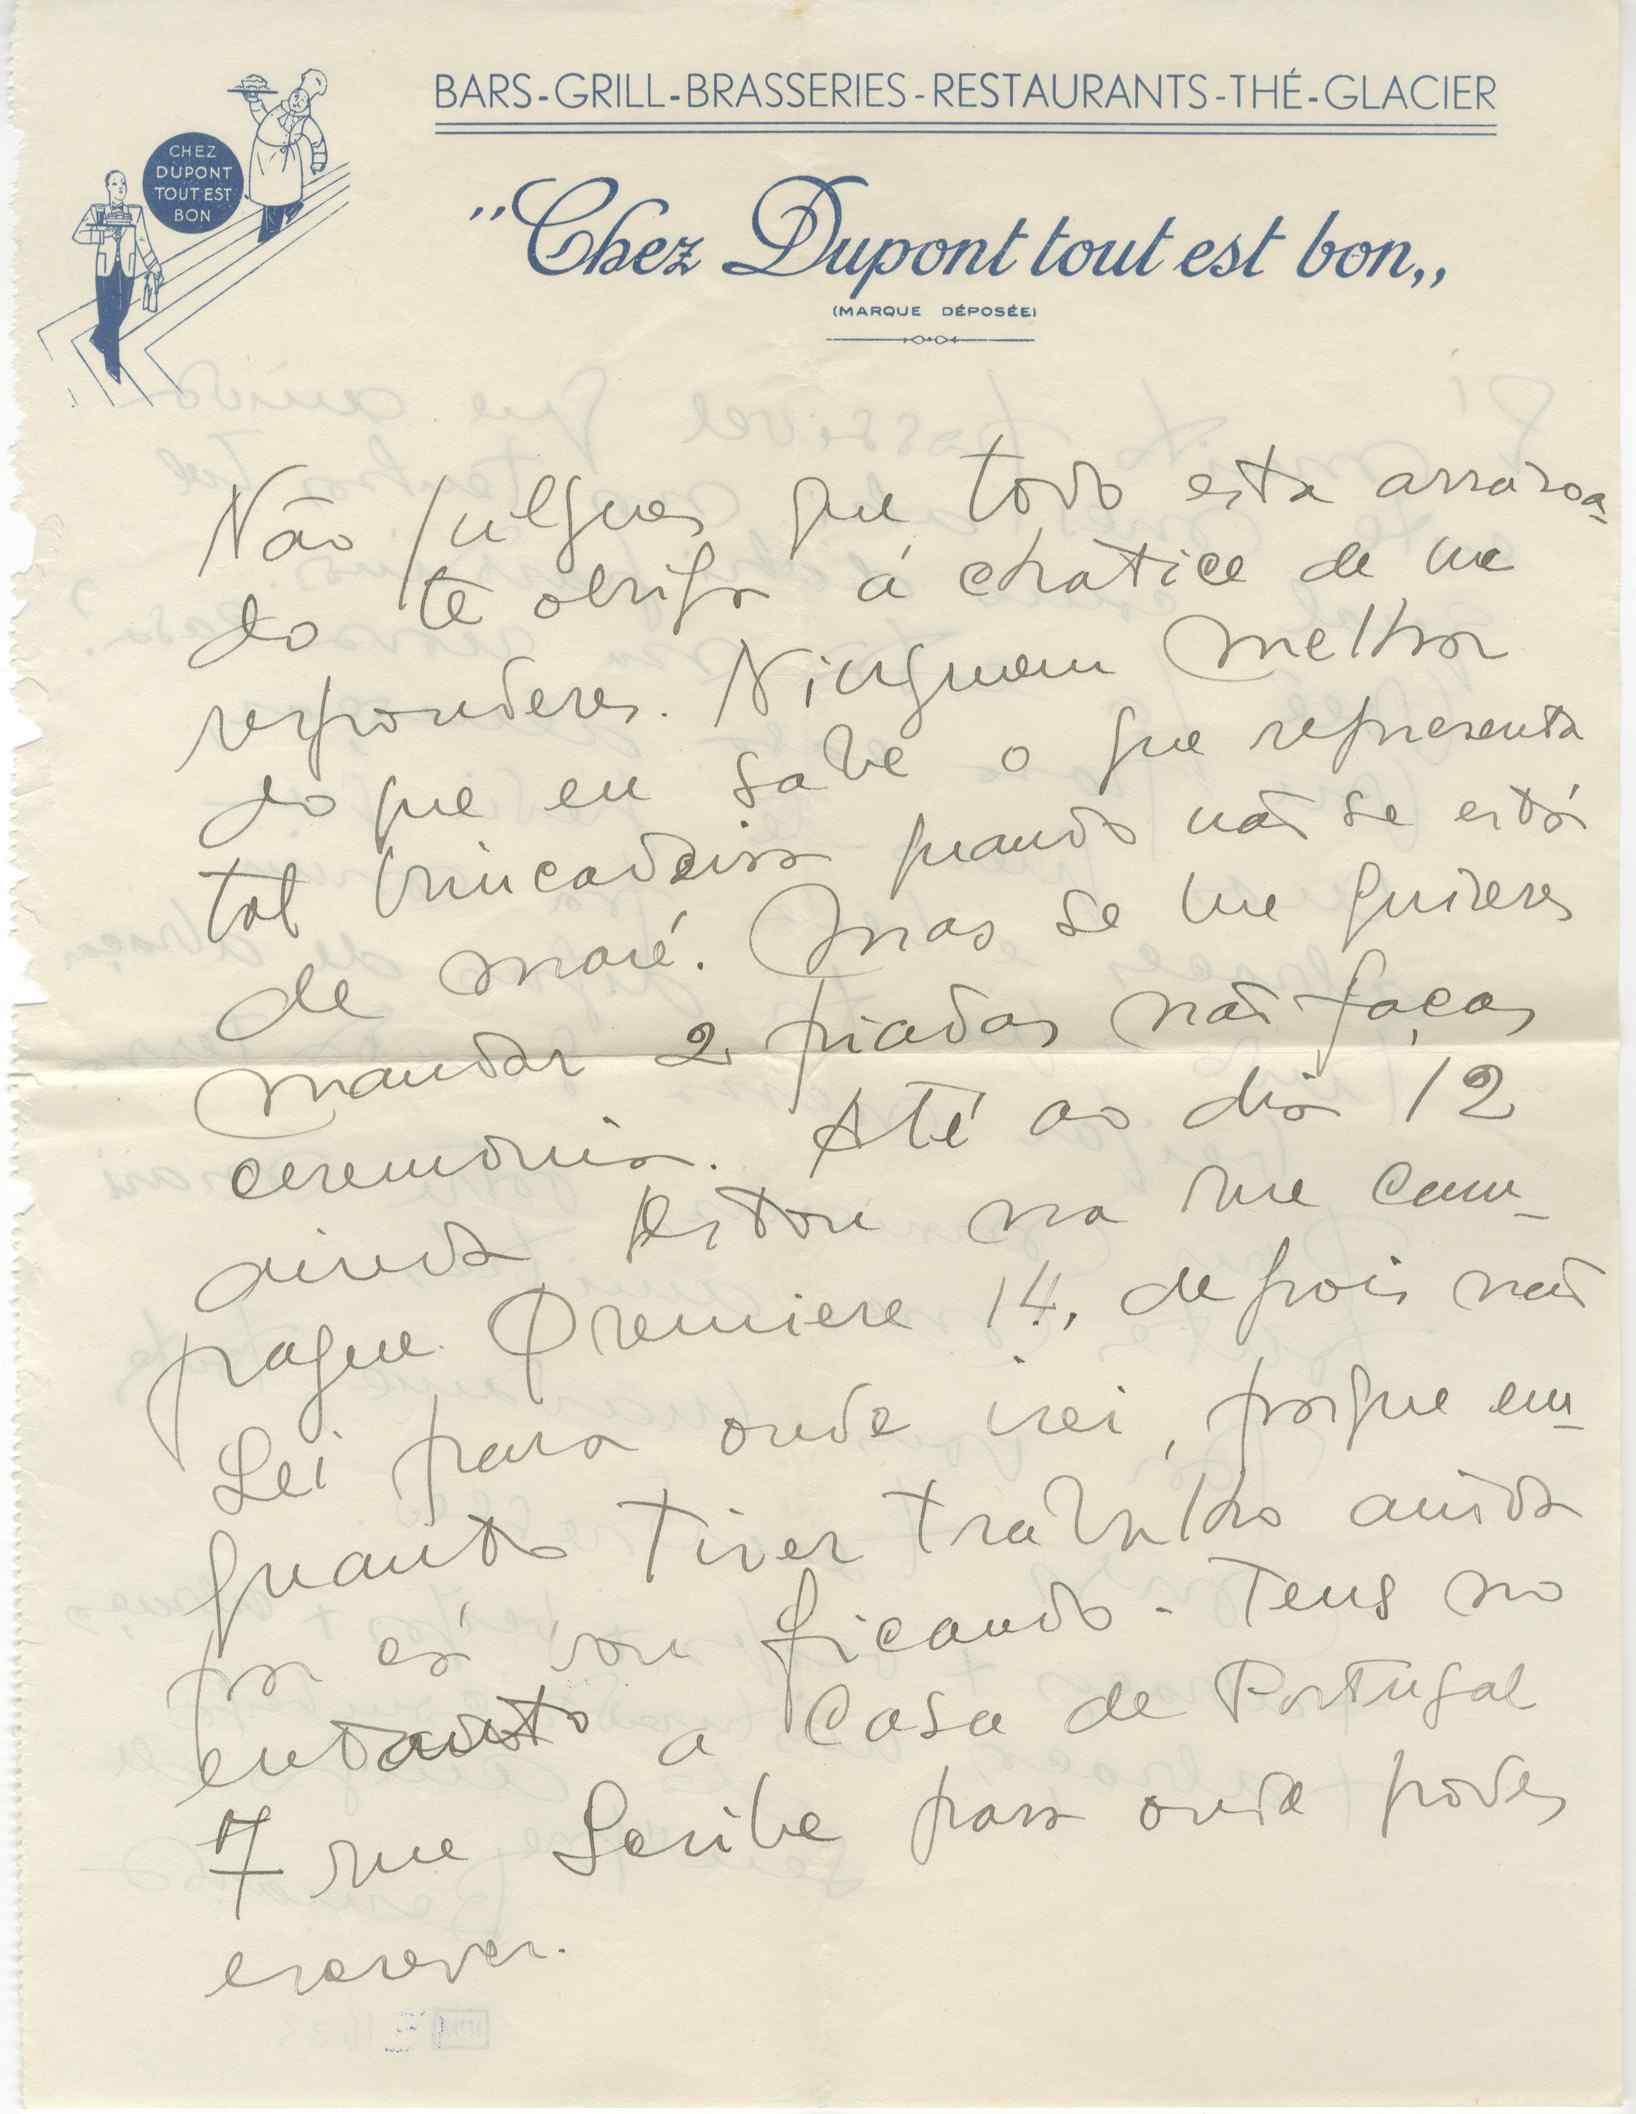 BARS-GRILL-BRASSERIES-RESTAURANTS-THÉ-GLACIER
CHEZ
DUPONT
TOUT EST
BON
"Chez Dupont tout est bon„
(MARQUE DÉPOSÉE)
Não julgues que todo esta arrazoa-
do te obriga á chatice de me
responderes. Ninguem melhor
do que eu sabe o que representa
tal brincadeira quando não se está
de maré. Mas se me quizeres
mandar 2 piadas não faças
ceremonia. Até ao dia 12
ainda estou na rue Cam-
pagne Premiere 14, depois não
sei para onde irei, porque em-
quanto tiver trabalho ainda
por cá vou ficando. Tens no
entanto a Casa de Portugal
7 rue Scribe para onde podes
escrever.